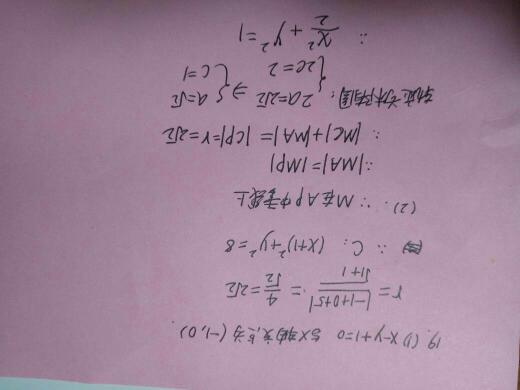 19. (1) x-y+1=0 与x轴交点为 (-1,0)
r = |-1+0+5| / √(1+1) = 4/√2 = 2√2
∴ C: (x+1)²+y²=8
(2). ∵ M在AP中垂线上
∴ |MA|=|MP|
∴ |MC|+|MA|=|CP|=r=2√2
轨迹为椭圆: { 2a=2√2 2c=2 ⇒ { a=√2 c=1
∴ x²/2 + y² = 1